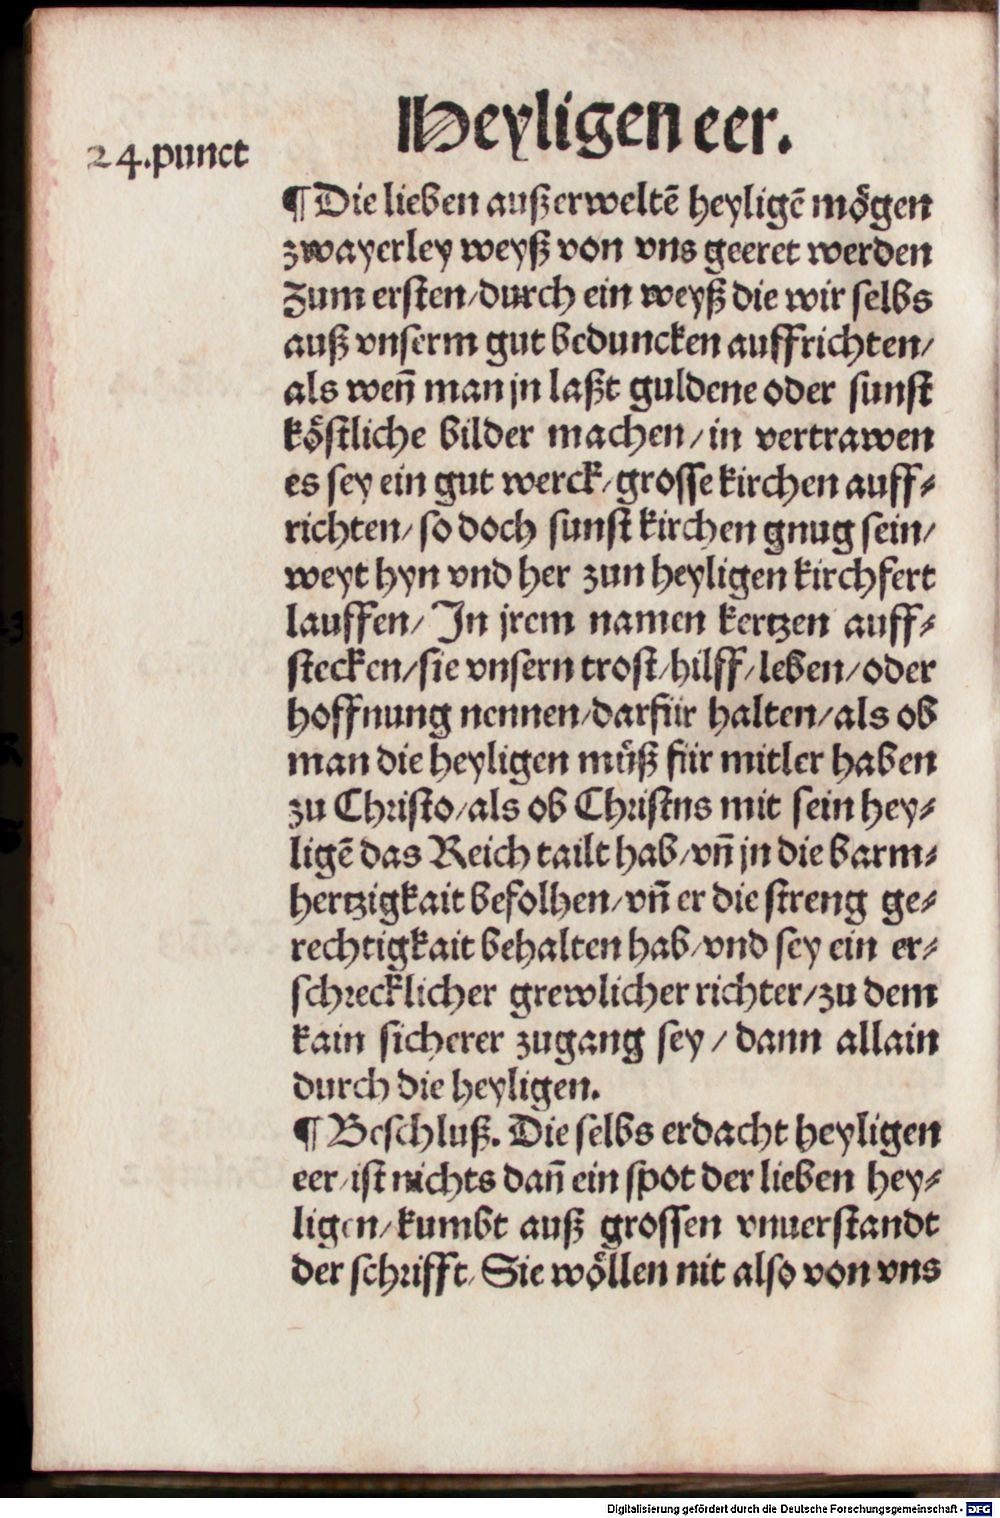 Heyligen eer.
24.punct
¶ Die lieben außerweltē heyligē mögen
zwayerley weyß von vns geeret werden
Zum ersten/durch ein weyß die wir selbs
auß vnserm gut beduncken auffrichten/
als weñ man jn laßt guldene oder sunst
köstliche bilder machen/in vertrawen
es sey ein gut werck/grosse kirchen auff⸗
richten/so doch sunst kirchen gnug sein/
weyt hyn vnd her zun heyligen kirchfert
lauffen/ In jrem namen kertzen auff⸗
stecken/sie vnsern trost/hilff/leben/oder
hoffnung nennen/darfür halten/als ob
man die heyligen müß für mitler haben
zu Christo/als ob Christns mit sein hey⸗
ligē das Reich tailt hab/vñ jn die barm⸗
hertzigkait befolhen/vñ er die streng ge⸗
rechtigkait behalten hab/vnd sey ein er⸗
schrecklicher grewlicher richter/zu dem
kain sicherer zugang sey/dann allain
durch die heyligen.
¶ Beschluß. Die selbs erdacht heyligen
eer/ist nichts dañ ein spot der lieben hey⸗
ligen/kumbt auß grossen vnuerstandt
der schrifft/Sie wöllen nit also von vns
Digitalisierung gefördert durch die Deutsche Forschungsgemeinschaft - DFG